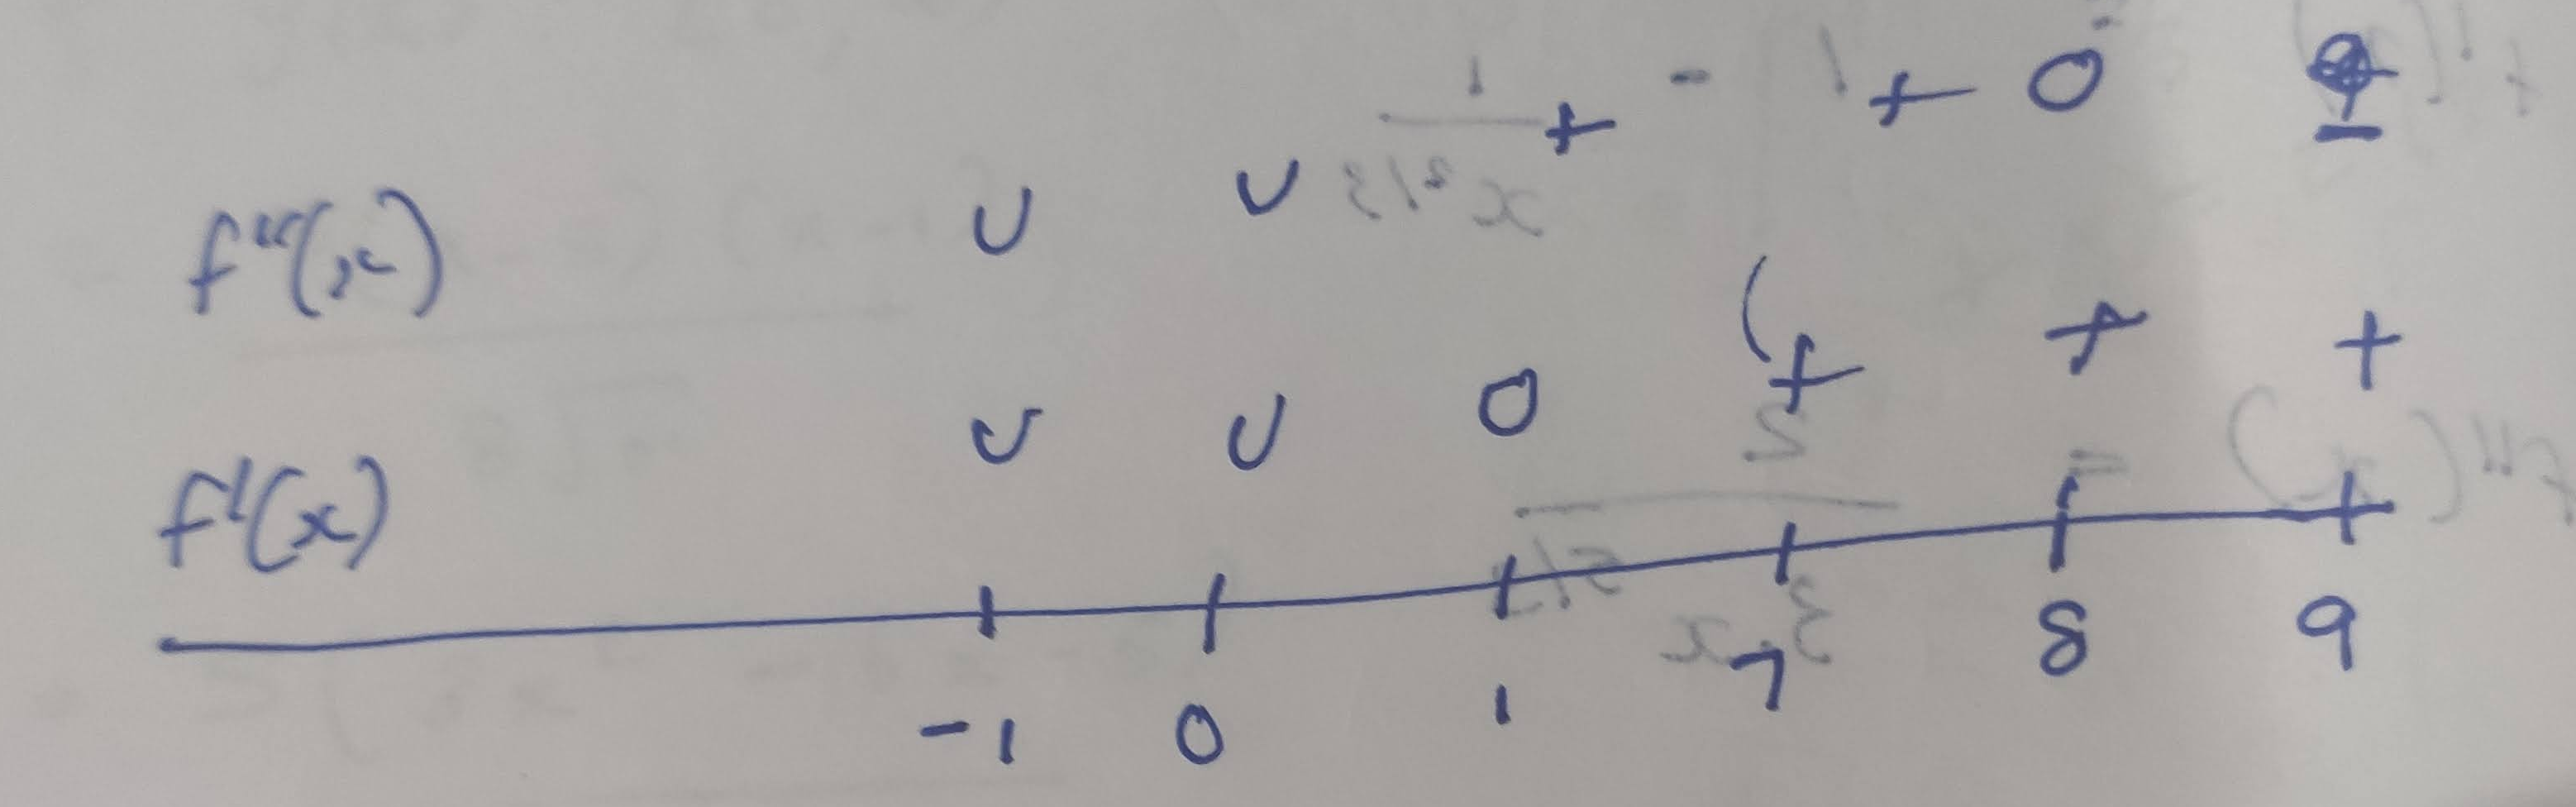 f"(x) U U + + 0 -
f'(x) U U 0 + + +
-1 0 1 7 8 9